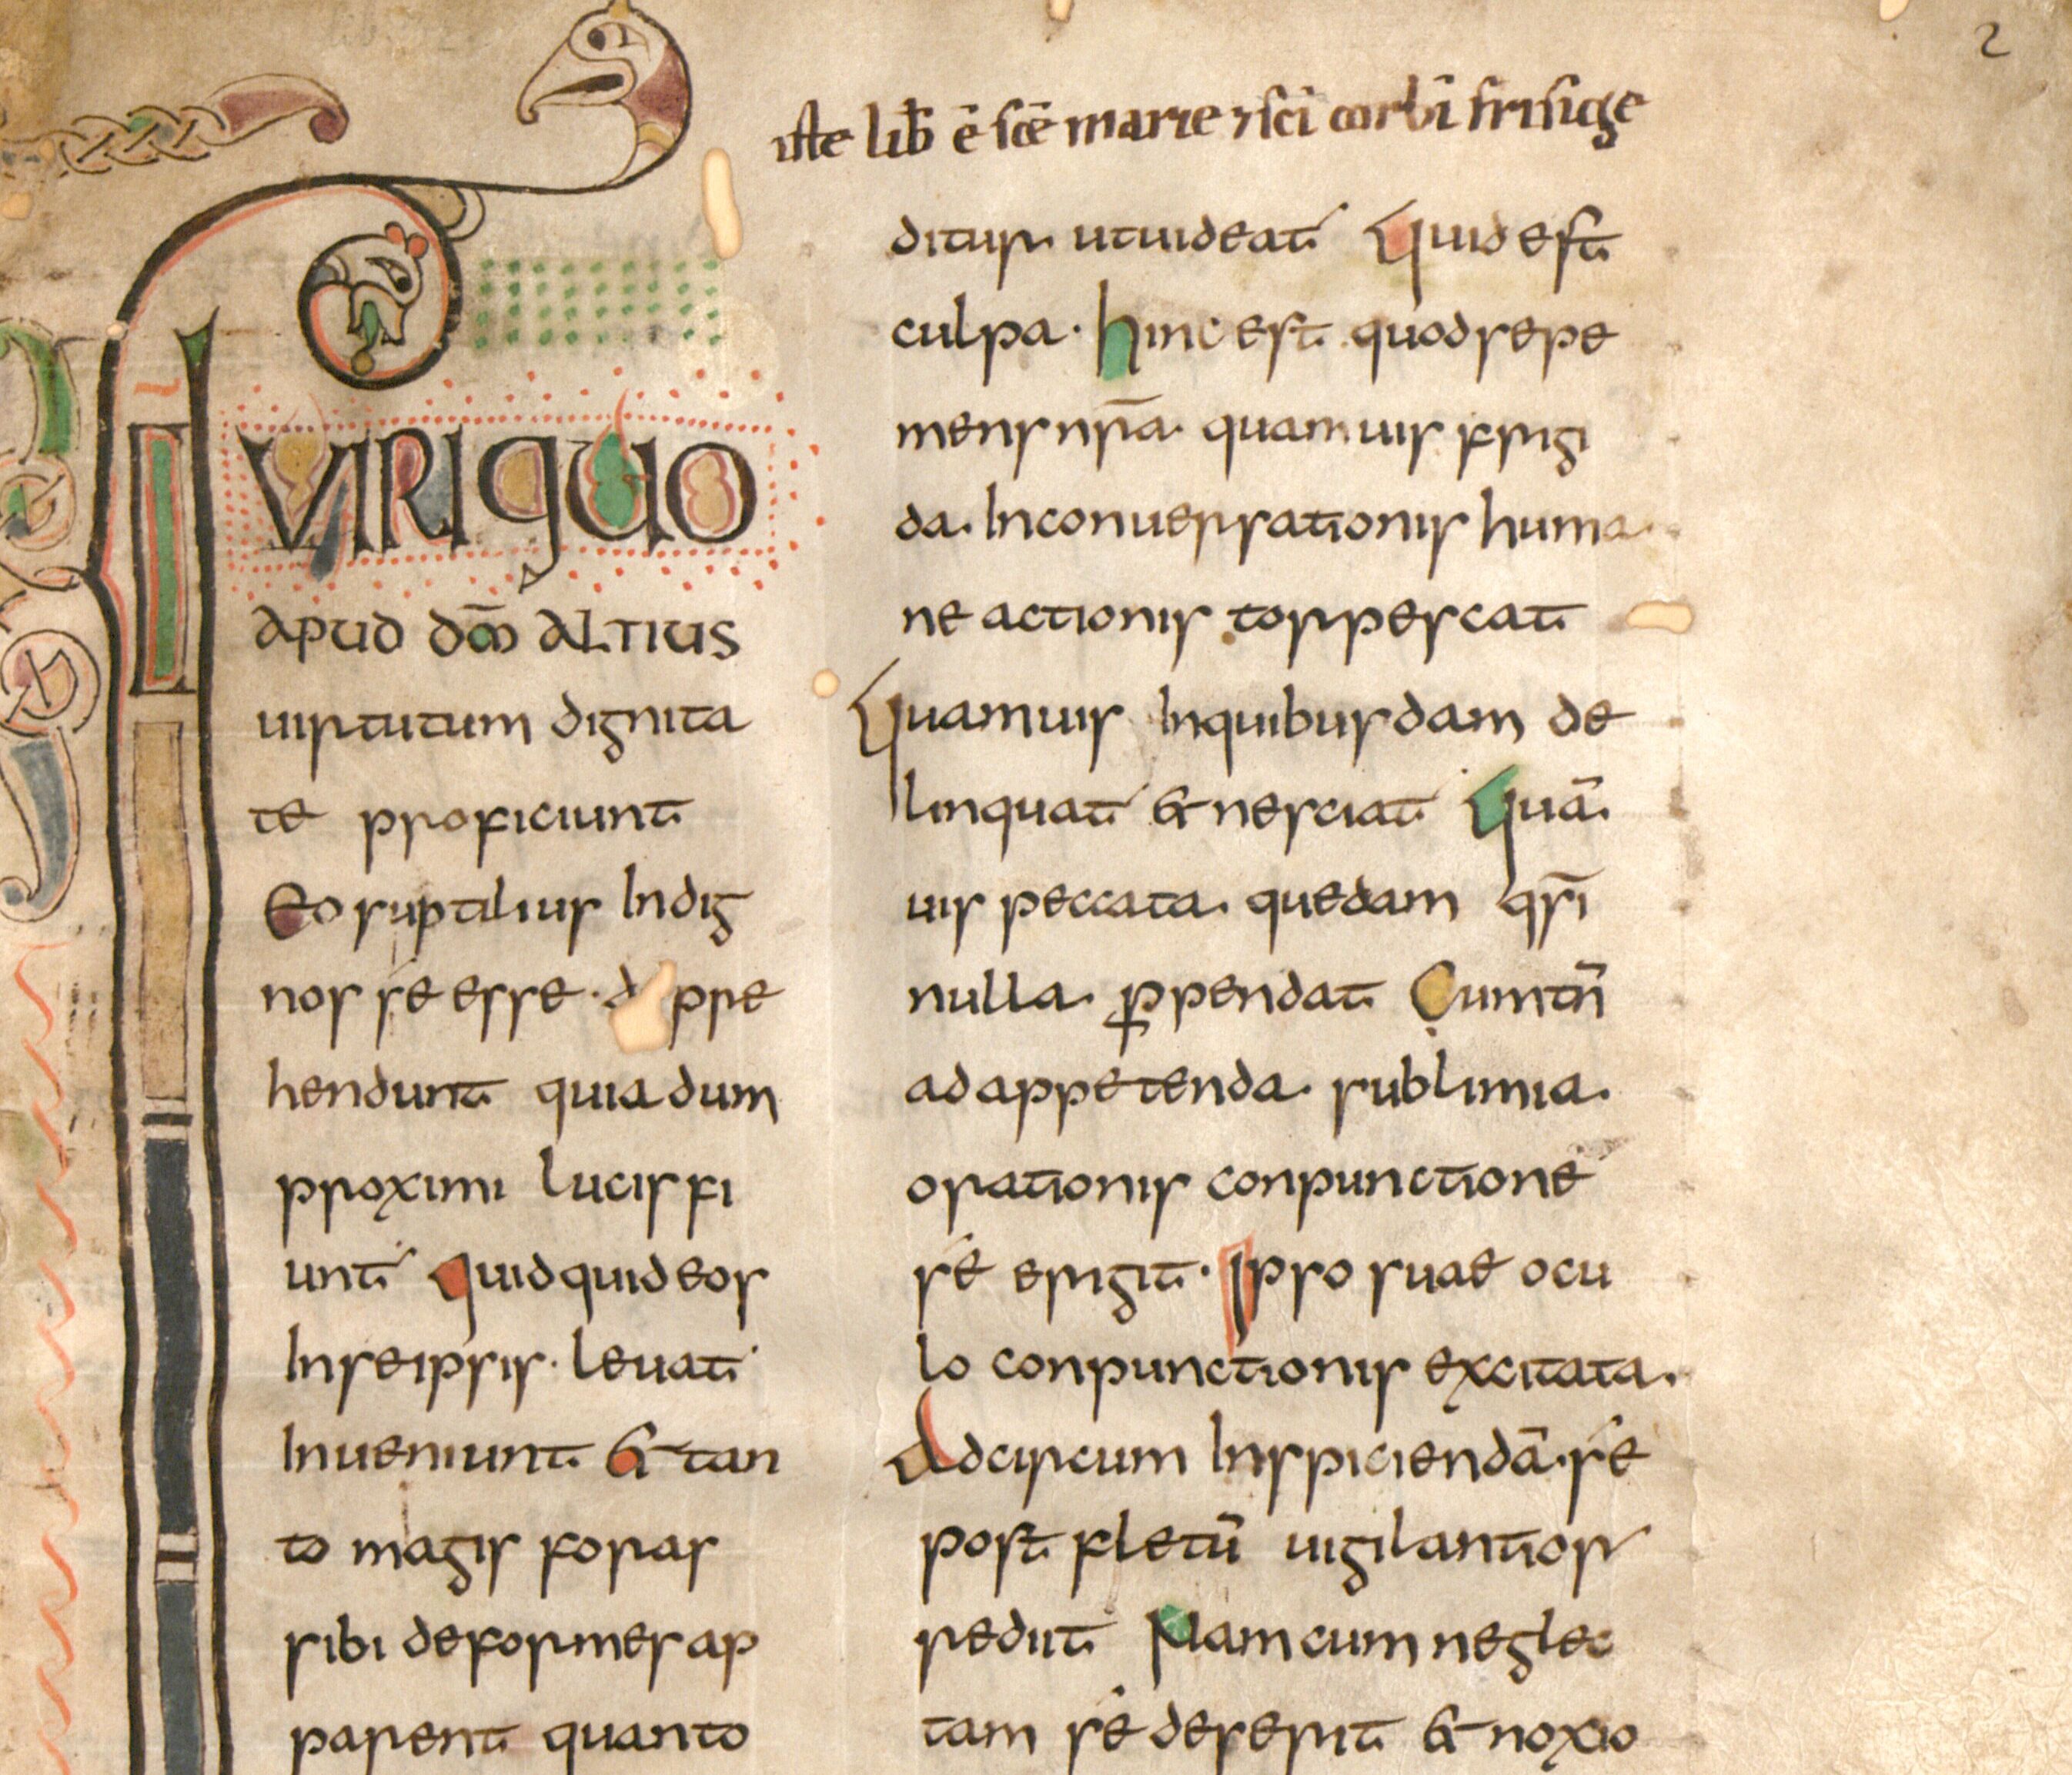 2
iste lib̄ ē sc̄e marie ⁊ sc̄i corbī frisīge
VIRI QUO
APUD DM̄ ALTIUS
uirtutum dignita
te proficiunt
Eo suptilius indig
nos se esse · d ppre
hendunt quia dum
proximi lucis fi
unt Quidquid eos
In se ipsis · leuat
Inueniunt & tan
to magis foras
sibi deformes ap
parent quanto
ditur ut uideat Quid est
culpa · hinc est quod sepe
mens nr̄a quamuis frigi
da. In conuersationis huma
ne actionis torpescat
Quamuis In quibusdam de
linquat & nesciat Quā
uis peccata quedam qsī
nulla ꝑpendat Cum tn̄
ad appetenda sublimia.
orationis conpunctione
se erigit · Ipso suae ocu
lo conpunctionis excitata.
Ad circum Inspiciendā se
post fletū uigilantior
rediit Nam cum neglec
tam se deserit & noxio